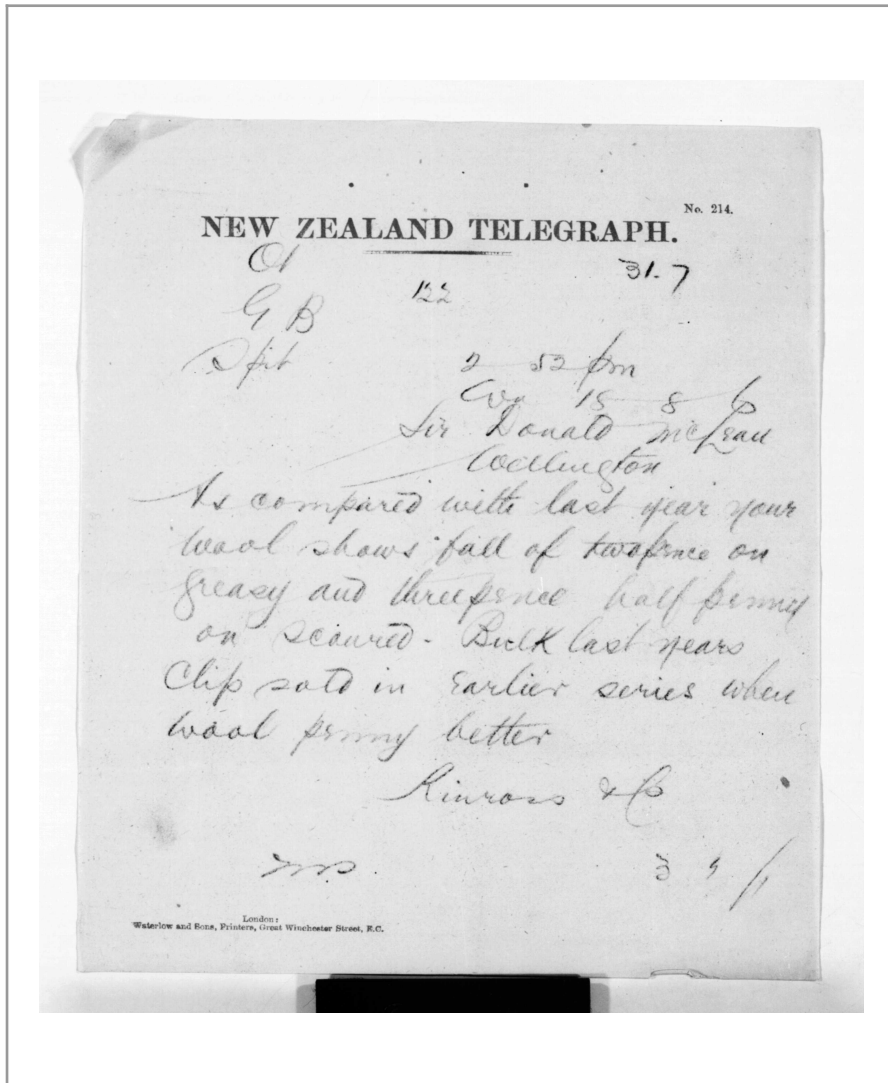 No. 214.
NEW ZEALAND TELEGRAPH.
31. 7
122
G B
Spit 2 52 pm
18 8
Sir Donald McLean
Wellington
As compared with last year your
wool shows fall of twopence on
greasy and threepence half penny
on scoured - Bulk last years
Clip sold in Earlier series when
wool penny better
Kinross & Co
3
London:
Waterlow and Sons, Printers, Great Winchester Street, E.C.